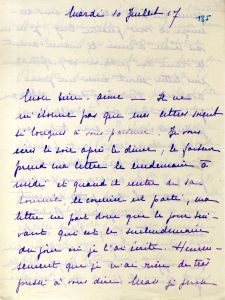 Mardi 10 Juillet 17
185
Mon bien-aimé - Je ne
m'étonne pas que mes lettres soient
si longues à vous parvenir. Je vous
écris le soir après le dîner, le facteur
prend ma lettre le lendemain à
midi et quand il rentre de sa
tournée le courrier est parti, ma
lettre ne part donc que le jour sui-
vant qui est le surlendemain
du jour où je l'ai écrite. Heureu-
sement que je n'ai rien de très
pressé à vous dire. Mais je pense